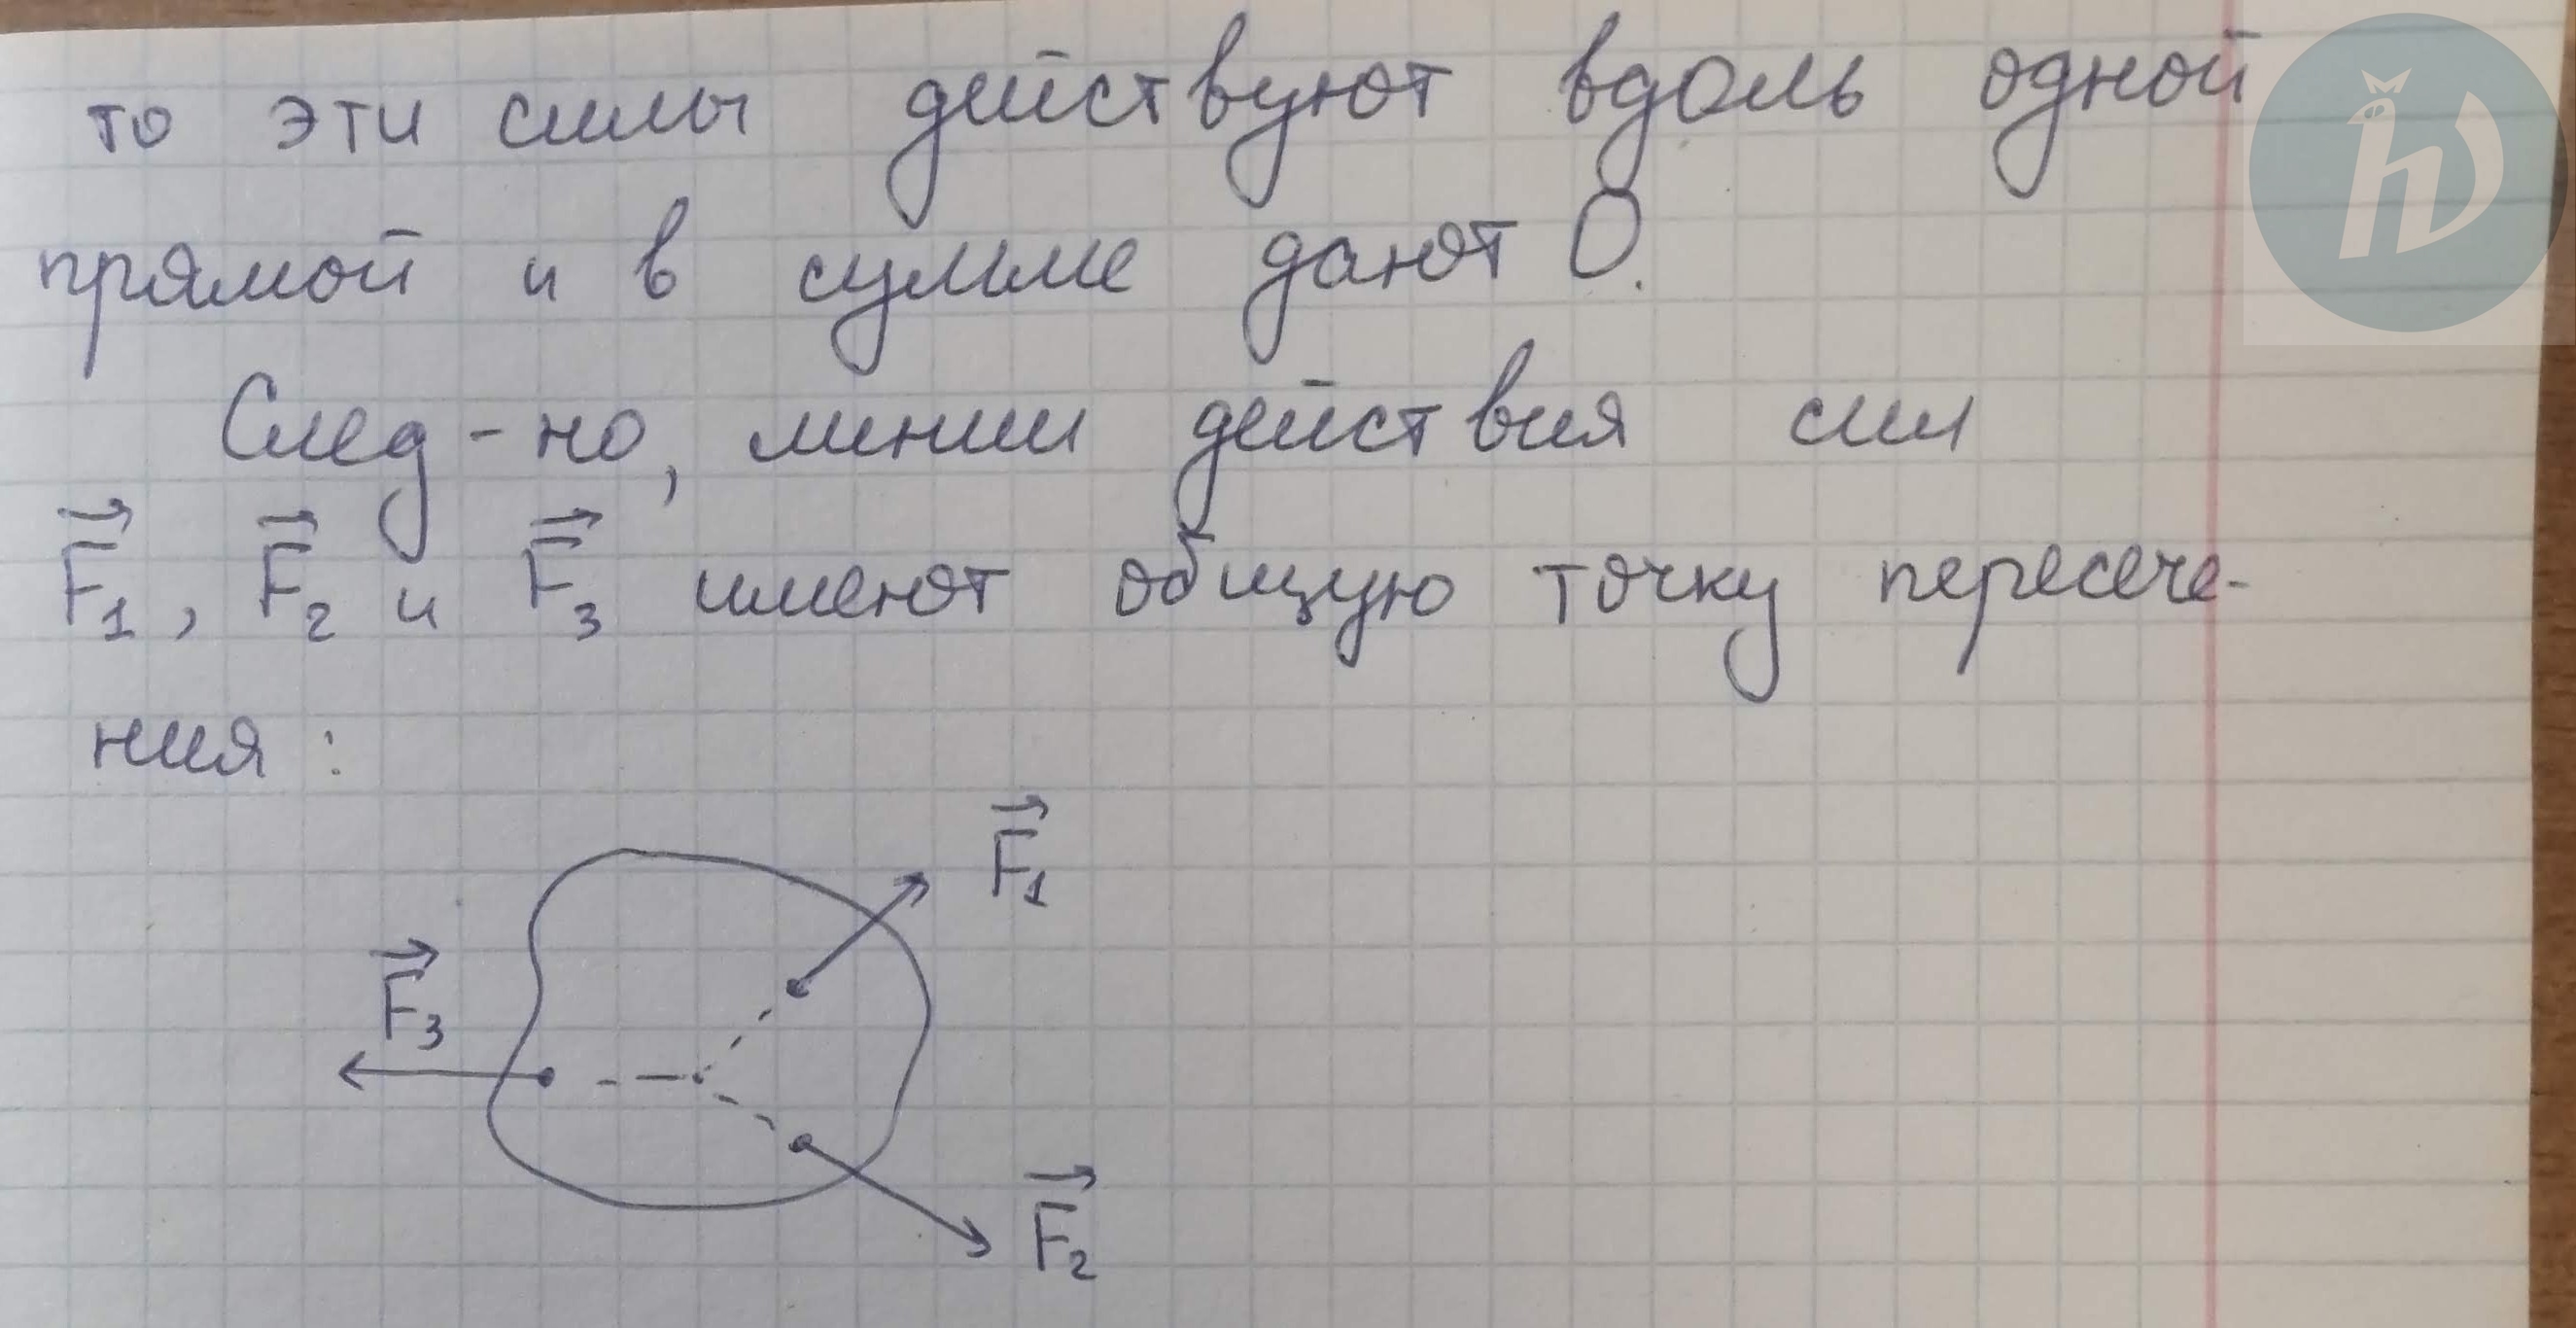 то эти силы действуют вдоль одной
прямой и в сумме дают 0.
След-но, линии действия сил
F₁, F₂ и F₃ имеют общую точку пересече-
ния:
F₁
F₃
F₂